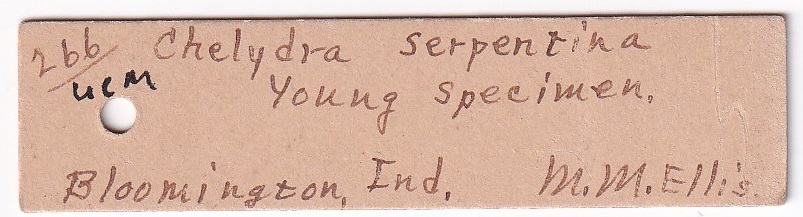 266 Chelydra serpentina
UCM Young specimen.
Bloomington, Ind. M.M.Ellis.